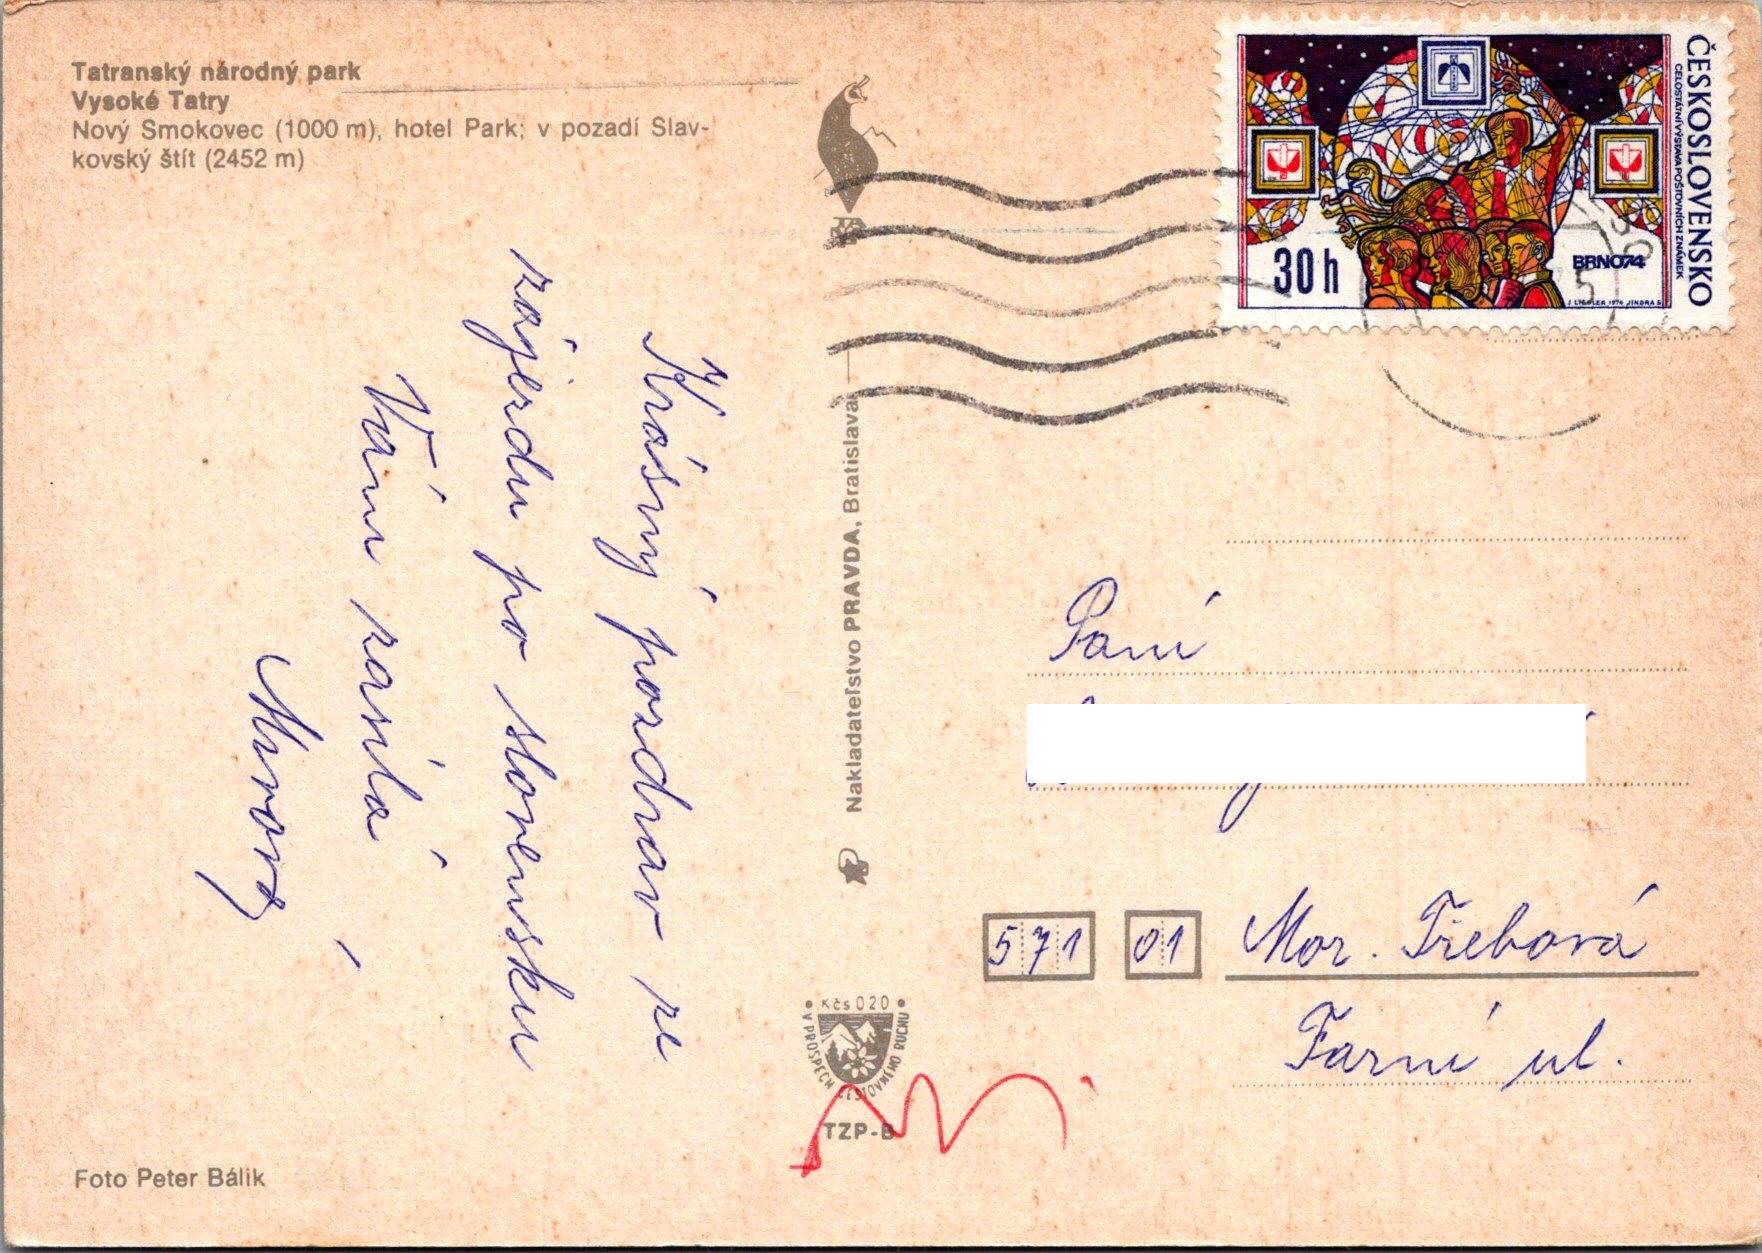 Tatranský národný park
Vysoké Tatry
Nový Smokovec (1000 m), hotel Park; v pozadí Slav-
kovský štít (2452 m)
Krásný pozdrav ze
zájezdu po slovensku
Vám zasílá
Foto Peter Bálik
Nakladateľstvo PRAVDA, Bratislava
Kčs 020
V PROSPECH CESTOVNÉHO RUCHU
TZP-B
ČESKOSLOVENSKO
CELOSTÁTNÍ VÝSTAVA POŠTOVNÍCH ZNÁMEK
30 h
BRNO74
J. LIESLER 1974 JINDRA S.
Paní
571 01 Mor. Třebová
Farní ul.